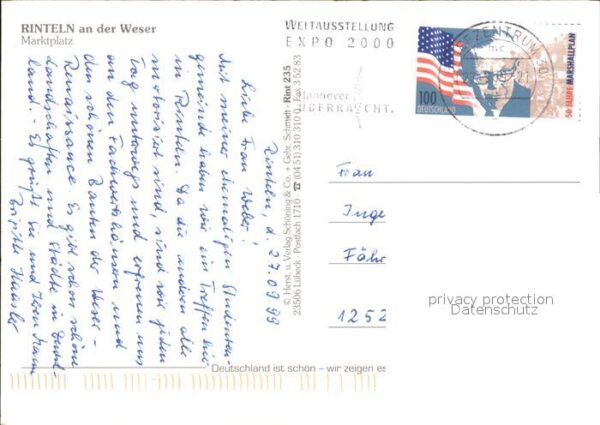 RINTELN an der Weser
Marktplatz
Rinteln, d. 27.09.99
Liebe Frau Weber!
Mit meiner ehemaligen Studenten-
gemeinde haben wir ein Treffen hier
in Rinteln. Da die anderen alle
motorisiert sind, sind wir jeden
Tag unterwegs und erfreuen uns
an den Fachwerkhäusern und
den schönen Bauten der Weser-
Renaissance. Es gibt schon schöne
Landschaften und Städte in Deutsch-
land. Es grüßt Sie und Ihren Mann
Brigitte
© Herst. u. Verlag Schöning & Co. + Gebr. Schmidt · Rint 235
23506 Lübeck · Postfach 1710 · ☎ (04 51) 310 310 · Fax 5 52 83
WELTAUSSTELLUNG
EXPO 2000
Hannover
ÜBERRASCHT.
BRIEFZENTRUM 30
mc
100
DEUTSCHLAND
50 JAHRE MARSHALLPLAN
Frau
Inge
Fähr
1252
privacy protection
Datenschutz
Deutschland ist schön – wir zeigen es